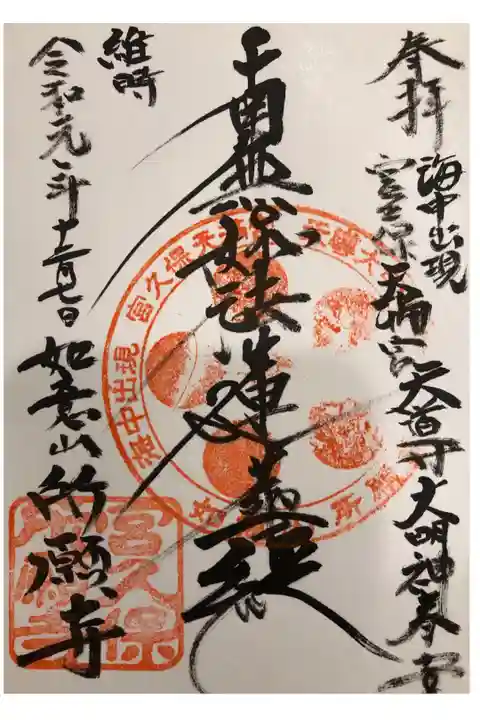 奉拝
海中出現
宮久保天満宮天道守大明神奉安
南無妙法蓮華経
維時
令和元年十二月七日
如意山所願寺
海中出現 宮久保天満
宮久保